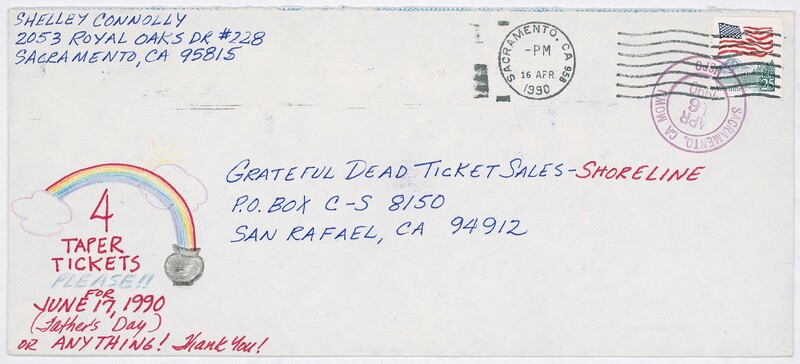 SHELLEY CONNOLLY
2053 ROYAL OAKS DR #228
SACRAMENTO, CA 95815
SACRAMENTO, CA 958
-PM
16 APR
1990
25
SACRAMENTO, CA MOWU
APR
16
1990
GRATEFUL DEAD TICKET SALES-SHORELINE
P.O. BOX C-S 8150
SAN RAFAEL, CA 94912
4
TAPER
TICKETS
PLEASE!!
FOR
JUNE 17, 1990
(Father's Day)
OR ANYTHING! Thank You!